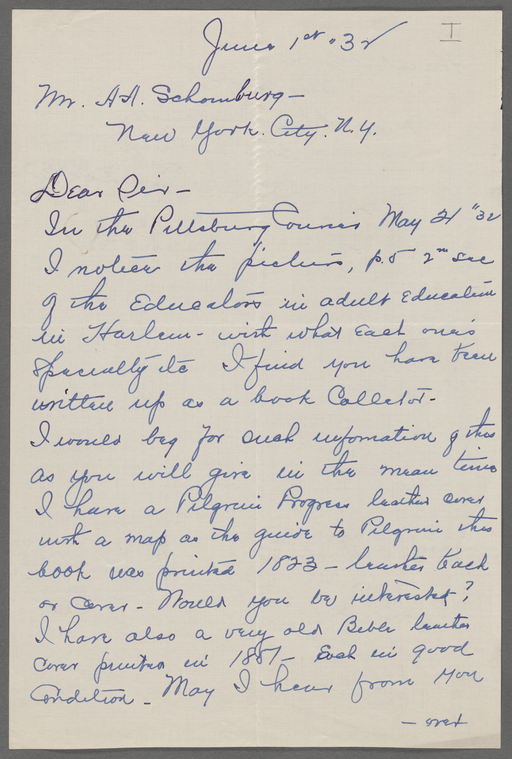 I
June 1st "32
Mr. A.A. Schomburg -
New York. City. N.Y.
Dear Sir -
In the Pittsburg Courier May 21 "32
I notice the picture, p. 5 2nd sec
of the Educators in adult Education
in Harlem - with what Each one's
Specialty etc I find you have been
written up as a book Collector -
I would beg for such information of this
as you will give in the mean time
I have a Pilgrim Progress leather cover
with a map as the guide to Pilgrim this
book was printed 1823 - leather back
or cover - Would you be interested?
I have also a very old Bible leather
cover printed in 1881 - Each in good
Condition - May I hear from you
- over